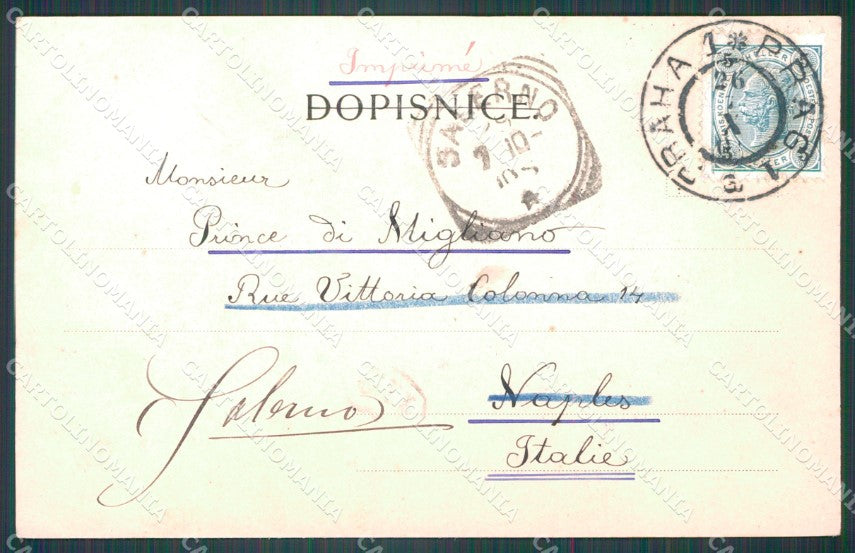 Imprimé
DOPISNICE.
SALERNO
PRAHA 1 * PRAG 1
Monsieur
Prince di Migliano
Rue Vittoria Colonna 14
Salerno
Naples
Italie
CARTOLINOMANIA